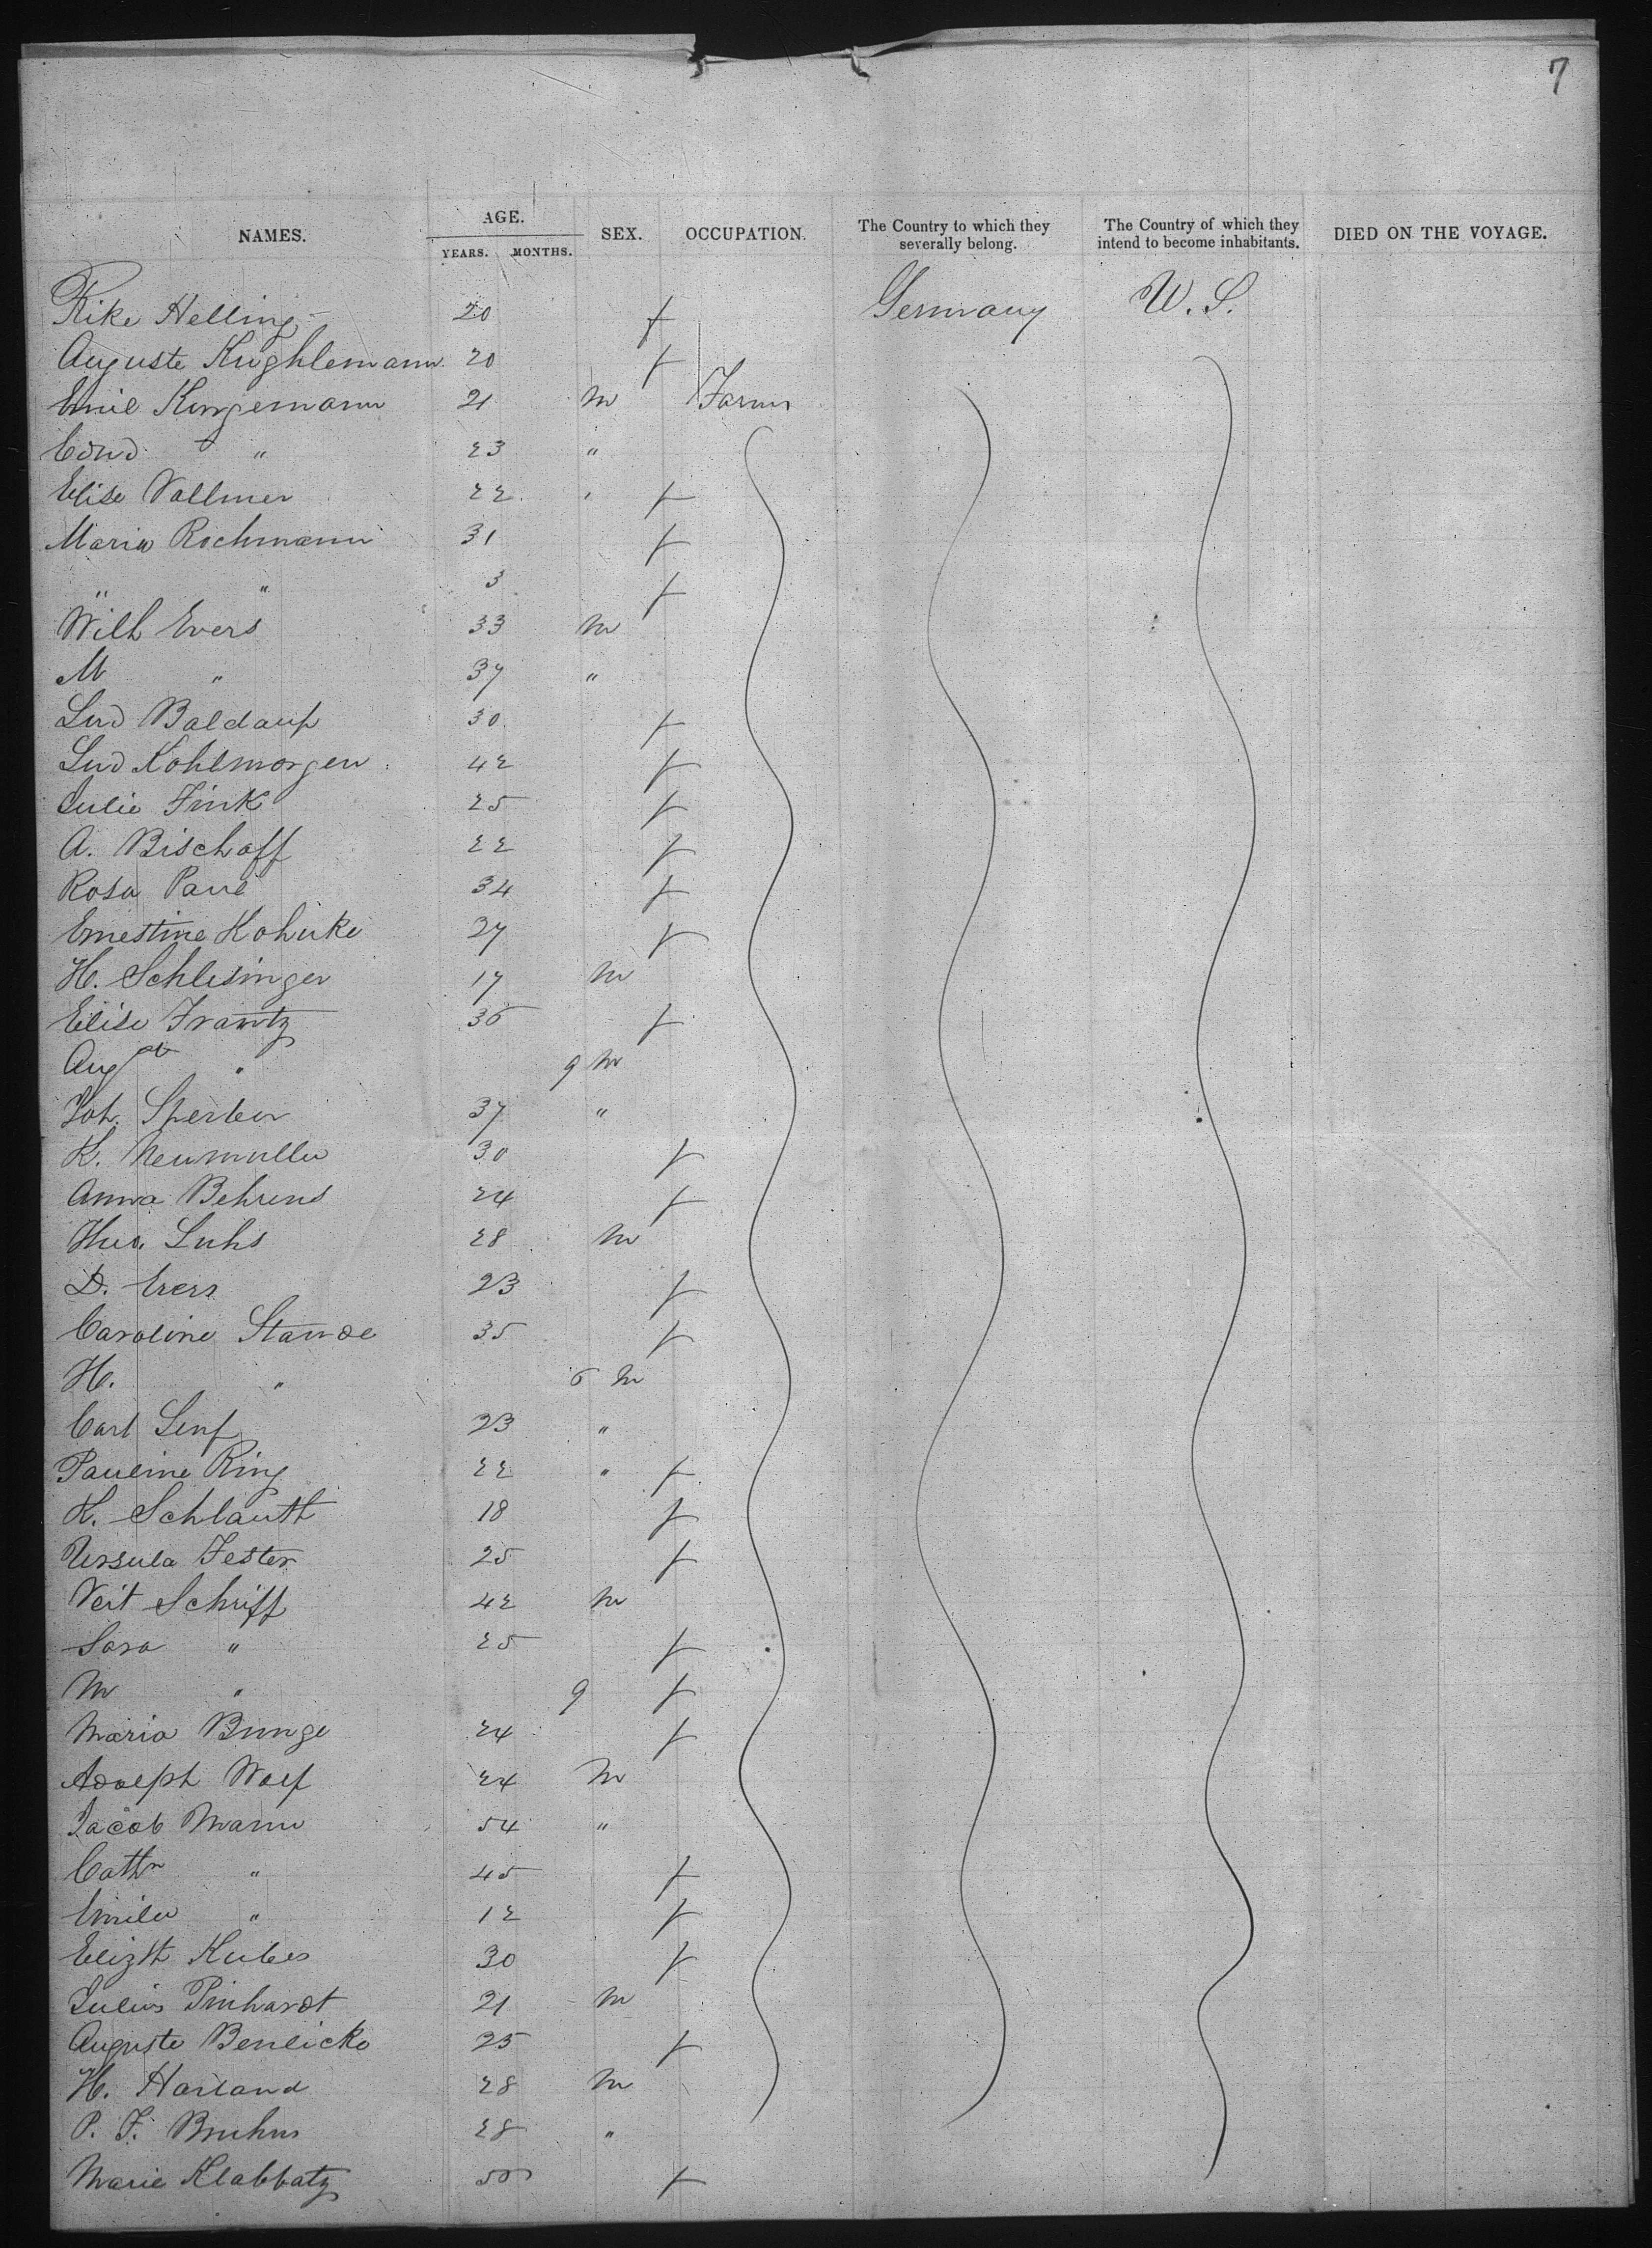 7
NAMES. AGE. YEARS. MONTHS. SEX. OCCUPATION. The Country to which they severally belong. The Country of which they intend to become inhabitants. DIED ON THE VOYAGE.
Rike Helling 20 f Germany U.S.
Auguste Kughlemann 20 f
Emil Kingemann 21 m Farmer
Edmd " 23 "
Elise Vollmer 22 " f
Maria Rochmann 31 f
" " 3 f
Wilh Evers 33 m
M " 37 "
Lud Baldauf 30 f
Lud Kohlmorgen 42 f
Julie Fink 25 f
A. Bischoff 22 f
Rosa Pavé 34 f
Ernestine Kohnke 27 f
H. Schlesinger 17 m
Elise Frantz 36 f
Augst " 9 m
Joh. Sperber 37 "
K. Neumuller 30 f
Anna Behrens 24 f
Theo. Luhs 28 m
D. Evers 23 f
Caroline Staude 35 f
H. " 6 m
Carl Senf 23 "
Pauline Ring 22 " f
K. Schlauth 18 f
Ursula Fester 25 f
Veit Schriff 42 m
Sara " 25 f
M " 9 f
Maria Bunge 24 f
Adolph Wolf 24 m
Jacob Mann 54 "
Cathr " 45 f
Emilie " 12 f
Elizth Kubes 30 f
Julius Pinhardt 21 m
Auguste Benlicke 25 f
H. Harland 28 m
P. F. Bruhns 28 "
Marie Klabbatz 50 f